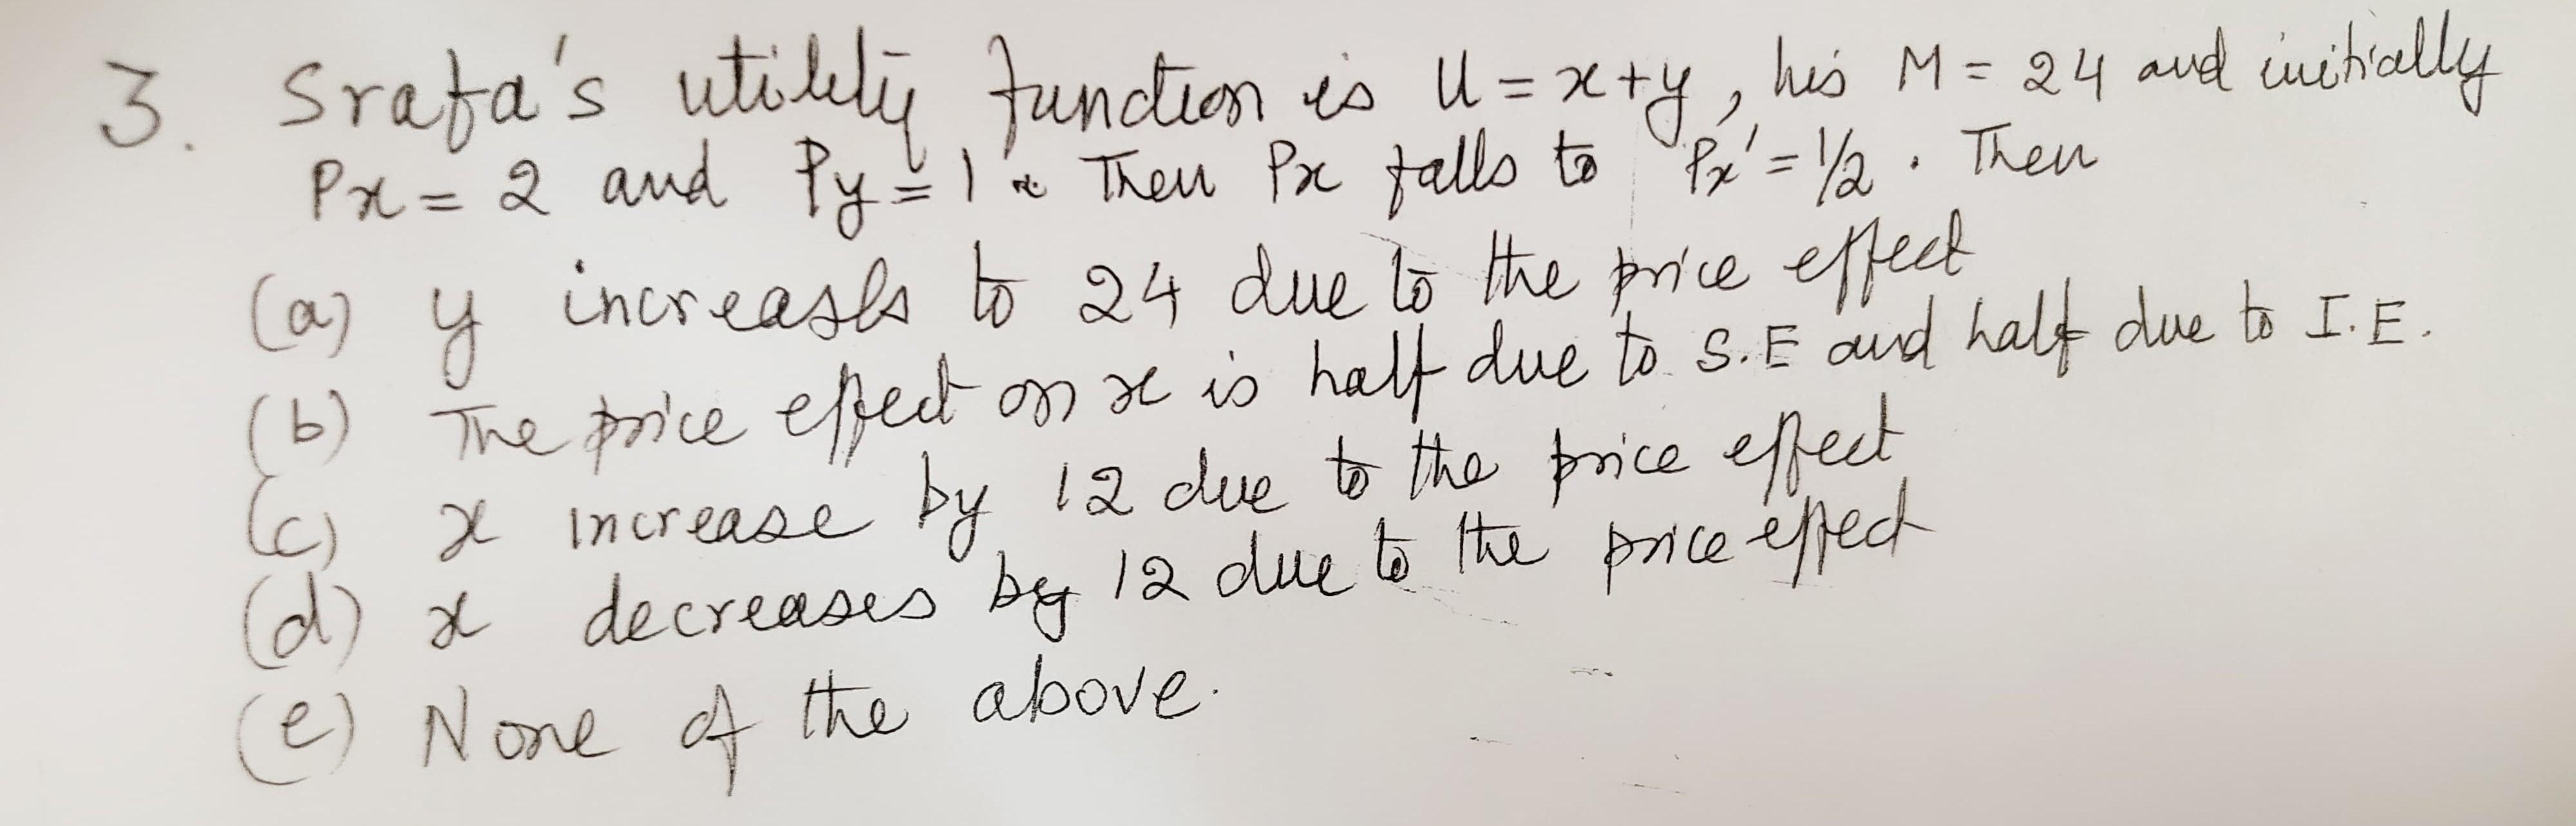 3. Srafa's utility function is U = x+y, his M = 24 and initially
Px = 2 and Py = 1. Then Px falls to Px' = 1/2. Then
(a) y increases to 24 due to the price effect
(b) The price effect on x is half due to S.E and half due to I.E.
(c) x increase by 12 due to the price effect
(d) x decreases by 12 due to the price effect
(e) None of the above.